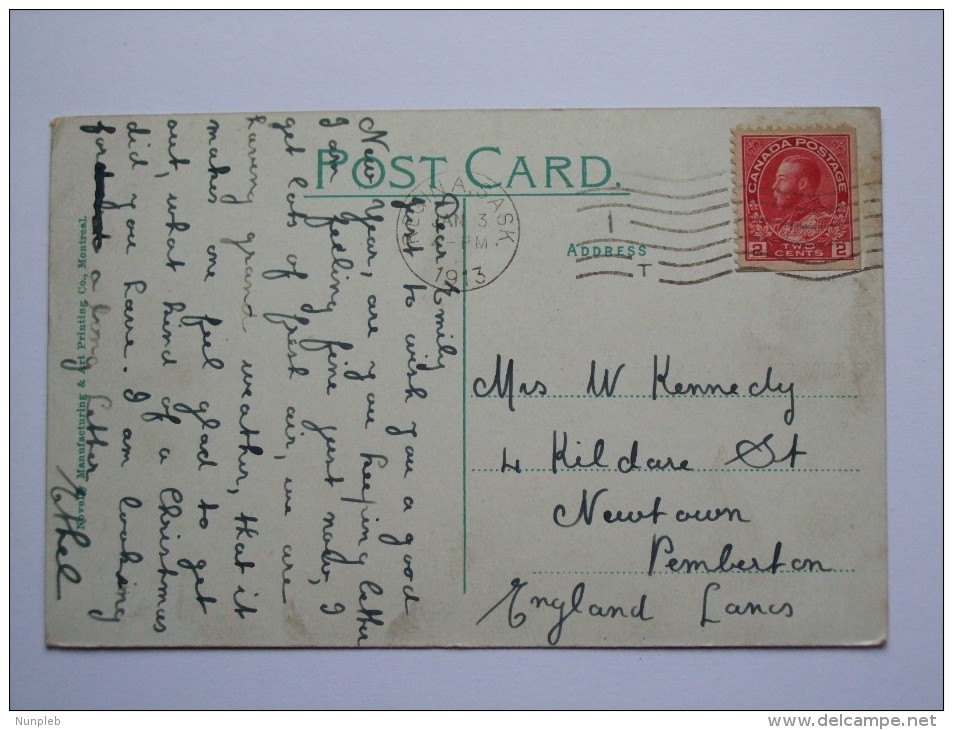 POST CARD.
REGINA, SASK.
JAN 3
PM
1913
1
T
CANADA POSTAGE
2 TWO CENTS 2
ADDRESS
Dear Emily
Just to wish you a good
New Year, are you keeping better
I am feeling fine just now, I
get lots of fresh air, we are
having grand weather, that it
makes one feel glad to get
out, what kind of a Christmas
did you have. I am looking
for a long letter
Ethel
Novelty Manufacturing & Art Printing Co., Montreal.
Mrs W Kennedy
4 Kildare St
Newtown
Pemberton
England Lancs
Nunpleb
www.delcampe.net